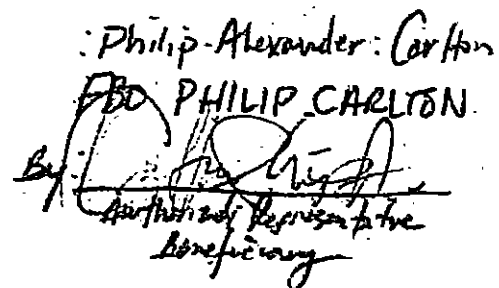 :Philip-Alexander: Carlton
FBO PHILIP CARLTON
By:
Authorized Representative
Beneficiary